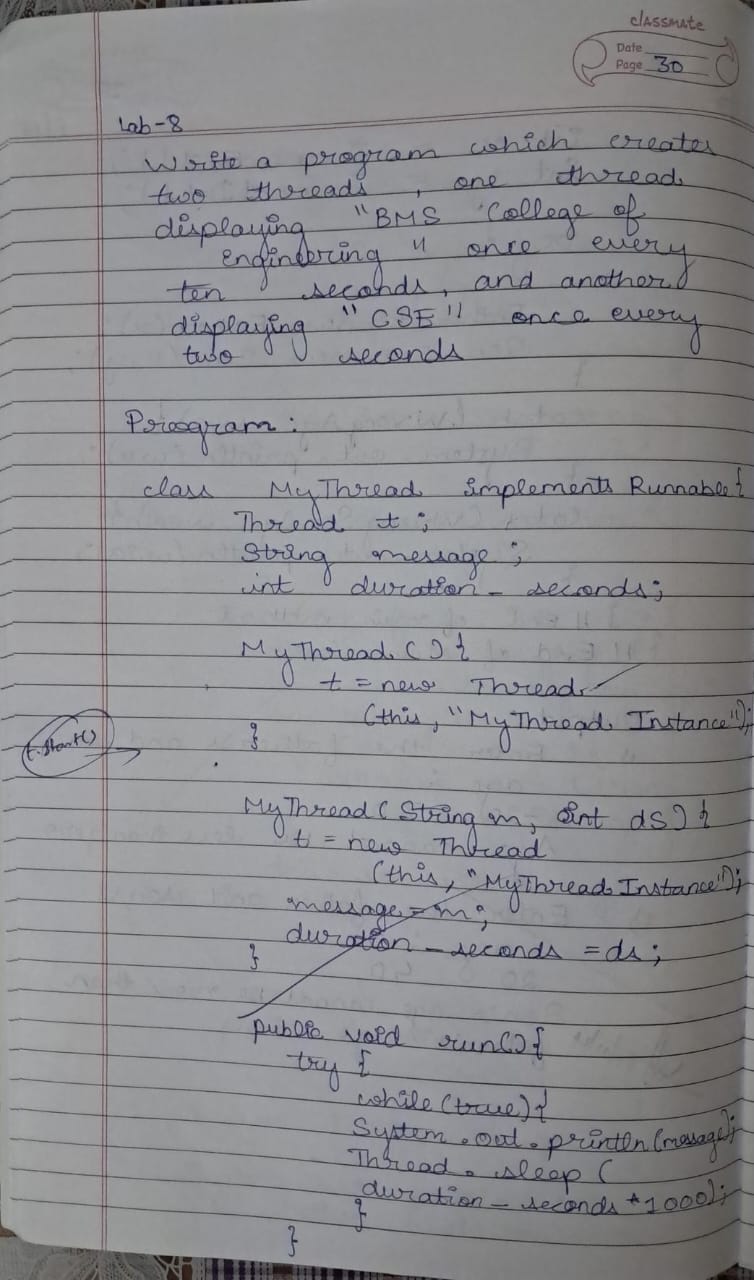 classmate
Date
Page 30
Lab-8
Write a program which creates
two threads, one thread
displaying "BMS College of
Engineering" once every
ten seconds, and another
displaying "CSE" once every
two seconds
Program:
class MyThread implements Runnable{
Thread t;
String message;
int duration_seconds;
MyThread(){
t = new Thread
(this, "MyThread Instance");
t.start()
}
MyThread(String m, int ds){
t = new Thread
(this, "MyThread Instance");
message = m;
duration_seconds = ds;
}
public void run(){
try {
while(true){
System.out.println(message);
Thread.sleep(
duration_seconds *1000);
}
}